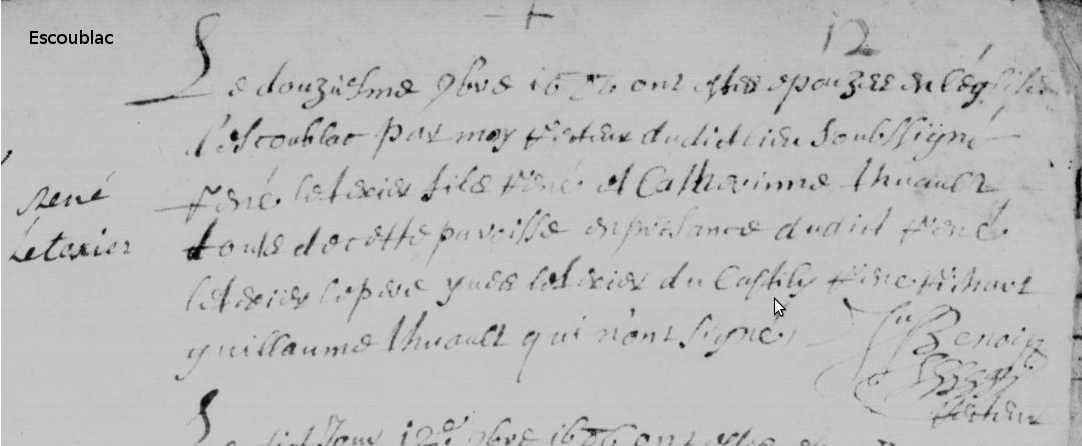 Escoublac
12
Le douziesme 9bre 1676 ont estes epouzes en léglise
d'escoublac par moy recteur dudict lieu soubssigné
René letexier fils René et Catherinne thuault
touts de cette paroisse en presance dudict René
letexier le pere yves letexier du Castily rene richart
guillaume thuault qui n'ont signé,
René
Letexier
Benoist
recteur
Le dict Jour 12e 9bre 1676 ont estes